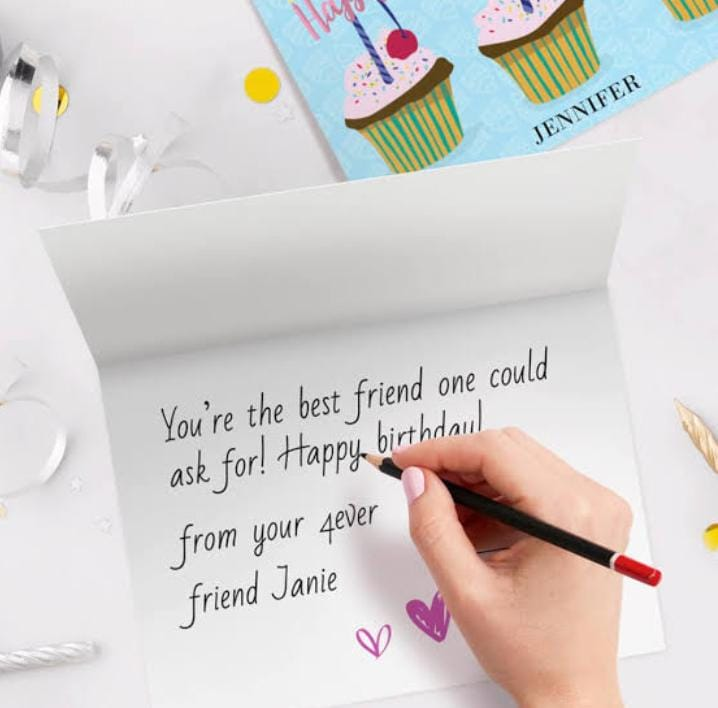 JENNIFER
You're the best friend one could
ask for! Happy birthday!
from your 4ever
friend Janie